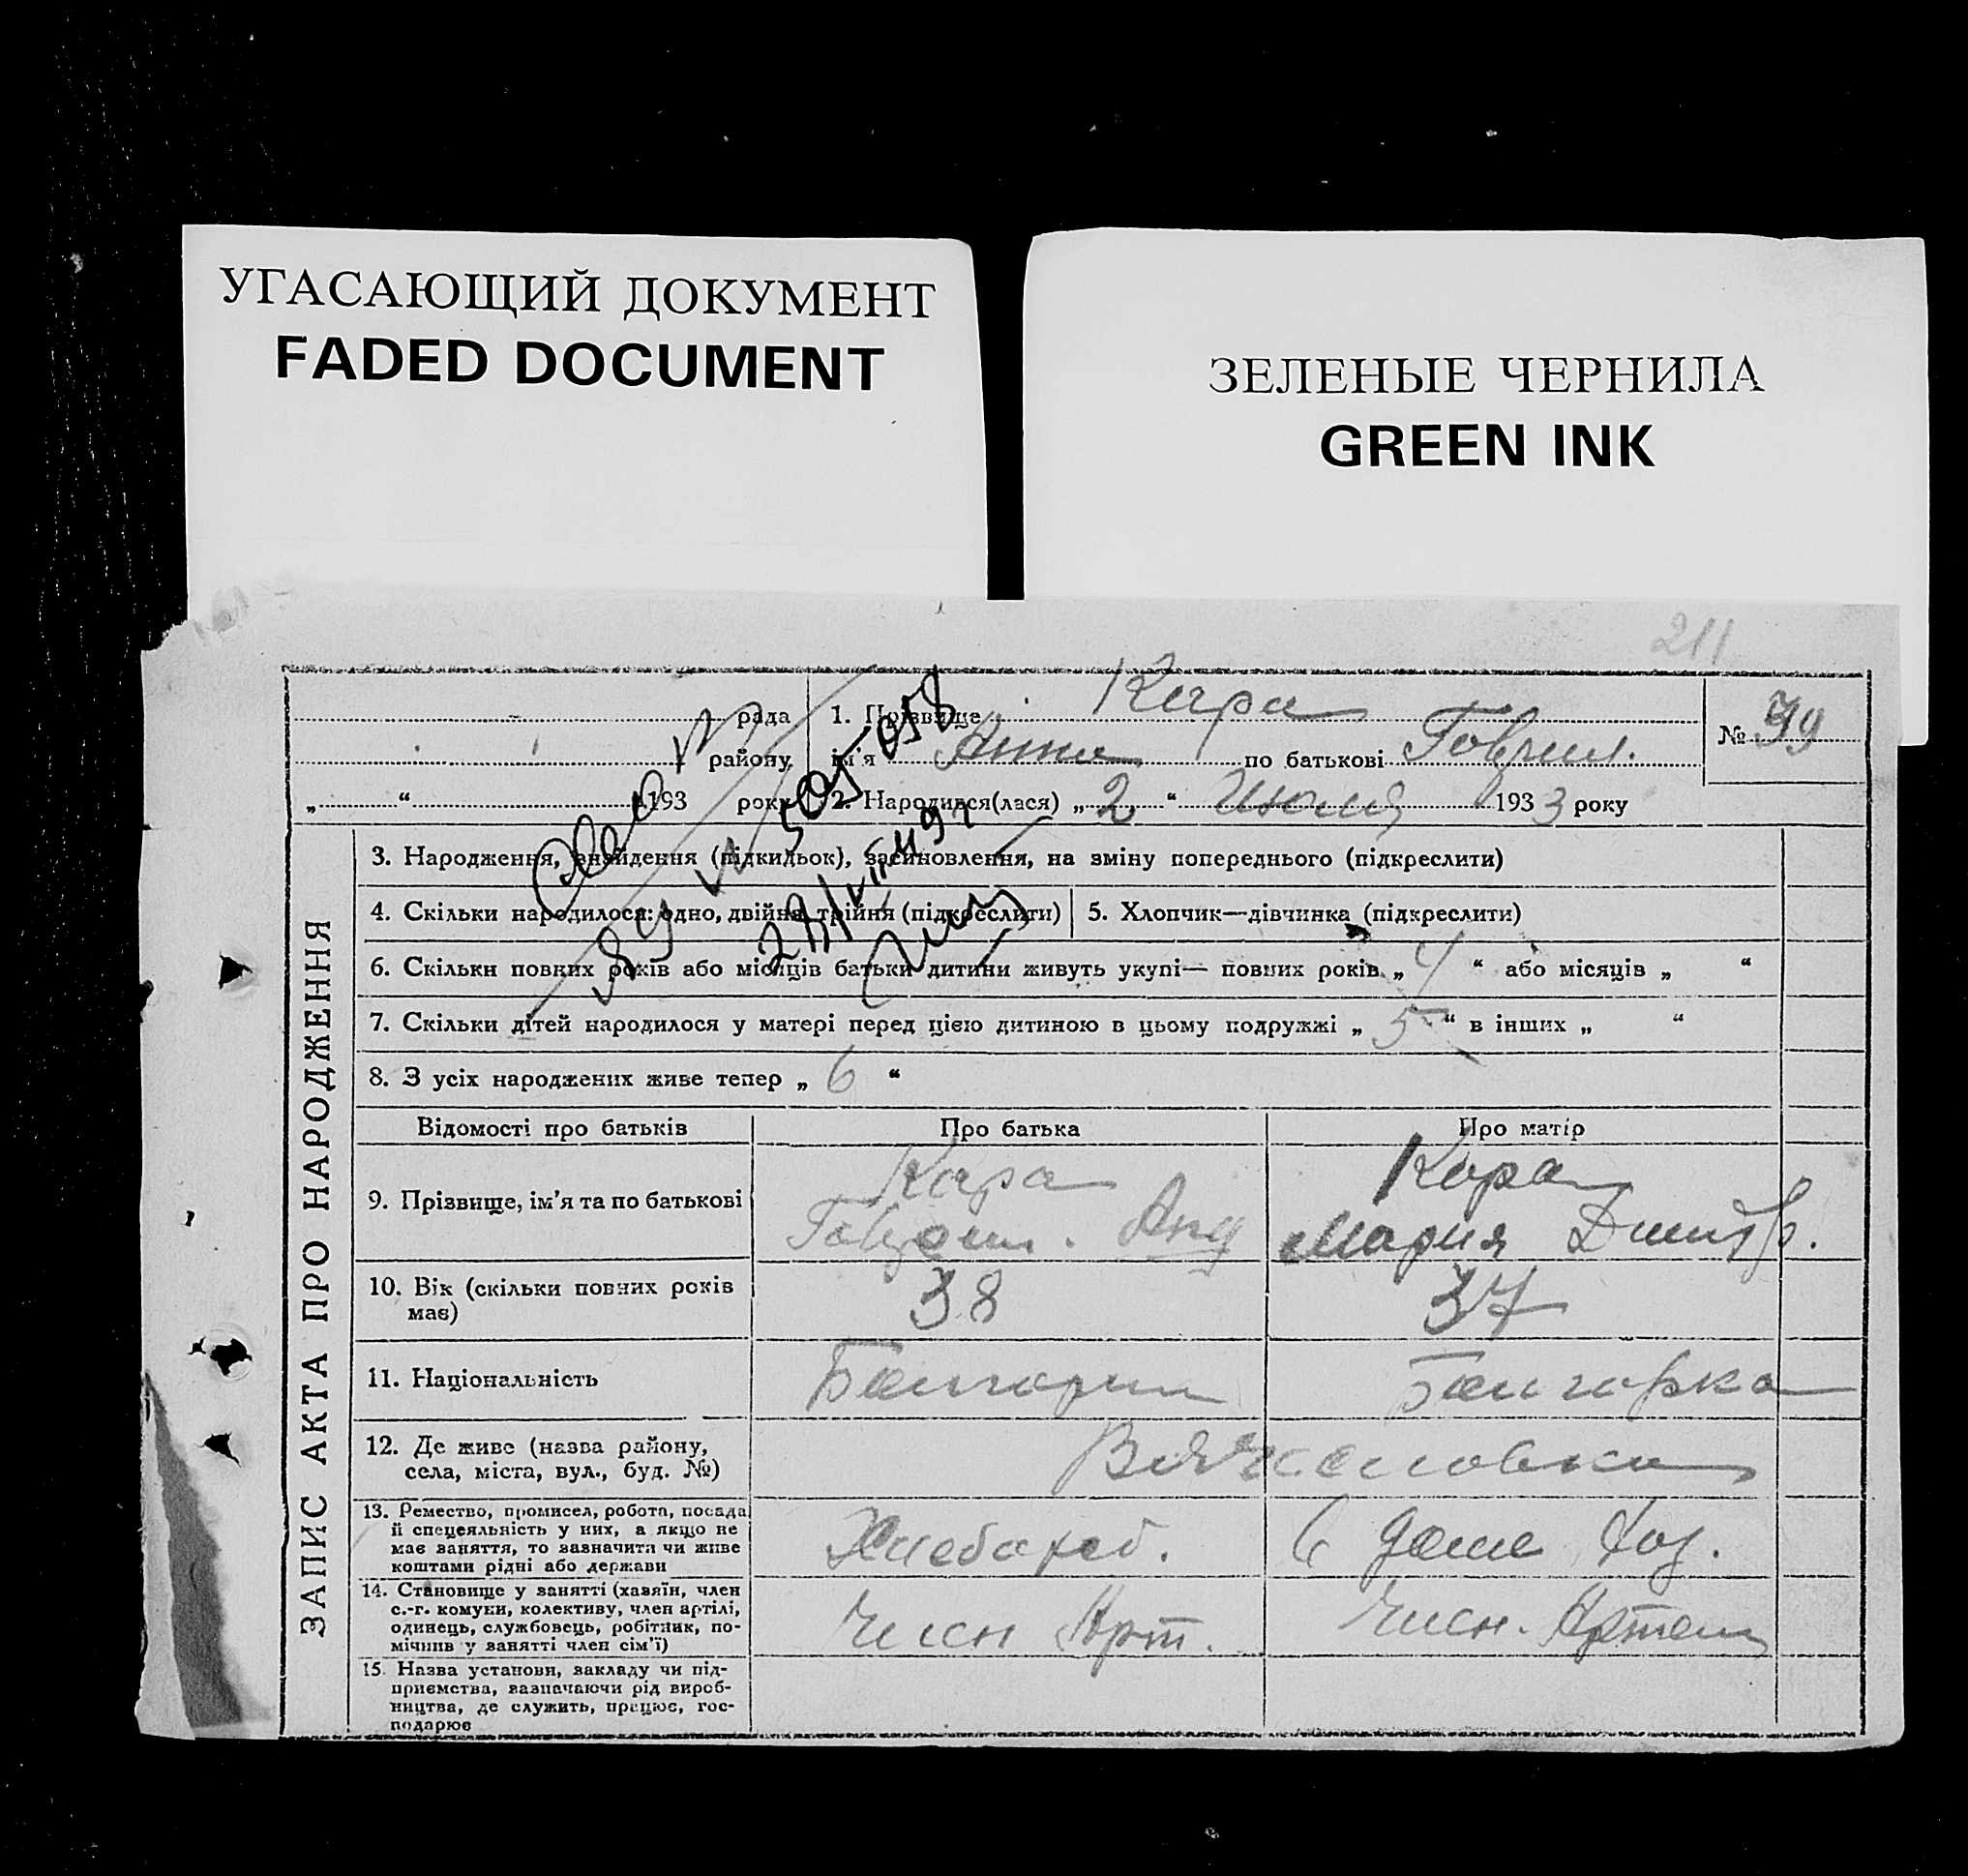 УГАСАЮЩИЙ ДОКУМЕНТ
FADED DOCUMENT
ЗЕЛЕНЫЕ ЧЕРНИЛА
GREEN INK
211
рада
району
„ “ 193 року
1. Прізвище Кара
ім'я Анна по батькові Гаврил.
2. Народився(лася) „2“ Июля 1933 року
№ 39
ЗАПИС АКТА ПРО НАРОДЖЕННЯ
3. Народження, знайдення (підкидьок), засиновлення, на зміну попереднього (підкреслити)
4. Скільки народилося: одно, двійня, трійня (підкреслити)
5. Хлопчик—дівчинка (підкреслити)
6. Скільки повних років або місяців батьки дитини живуть укупі— повних років „ “ або місяців „ “
7. Скільки дітей народилося у матері перед цією дитиною в цьому подружжі „5“ в інших „ “
8. З усіх народжених живе тепер „6“
Відомості про батьків
Про батька
Про матір
9. Прізвище, ім'я та по батькові
Кара
Гаврил. Анд
Кара
Мария Дмитр.
10. Вік (скільки повних років
має)
38
37
11. Національність
Болгарин
Болгарка
12. Де живе (назва району,
села, міста, вул., буд. №)
13. Ремество, промисел, робота, посада
й спецеяльність у них, а якщо не
має заняття, то зазначити чи живе
коштами рідні або держави
Хлебороб.
в доме хоз.
14. Становище у занятті (хазяїн, член
с.-г. комуни, колективу, член артілі,
одинець, службовець, робітник, по-
мічник у занятті член сім'ї)
Член Арт.
Член. Артели
15. Назва установи, закладу чи під-
приємства, зазначаючи рід вироб-
ництва, де служить, працює, гос-
подарює